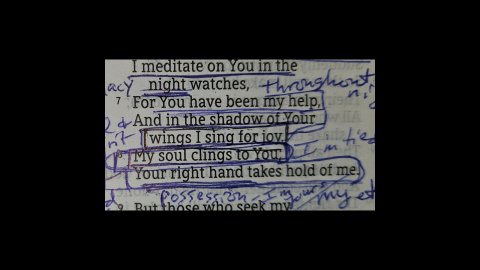 I meditate on You in the
night watches, throughout
7 For You have been my help,
And in the shadow of Your
wings I sing for joy.
My soul clings to You;
Your right hand takes hold of me.
Possession - I'm yours my
But those who seek my